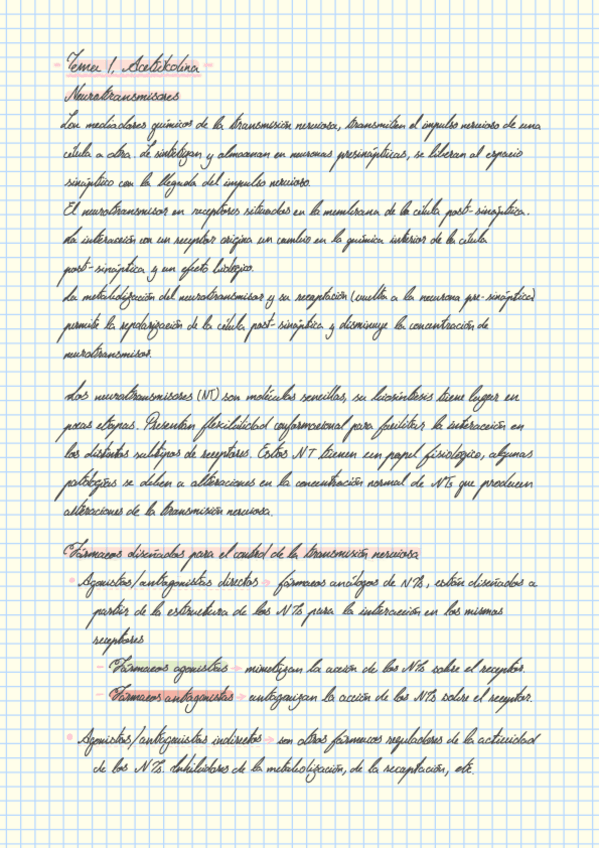 Tema 1. Acetilcolina
Neurotransmisores
Son mediadores químicos de la transmisión nerviosa, transmiten el impulso nervioso de una
célula a otra. Se sintetizan y almacenan en neuronas presinápticas, se liberan al espacio
sináptico con la llegada del impulso nervioso.
El neurotransmisor en receptores situados en la membrana de la célula post-sináptica.
La interacción con un receptor origina un cambio en la química interior de la célula
post-sináptica y un efecto biológico.
La metabolización del neurotransmisor y su recaptación (vuelta a la neurona pre-sináptica)
permite la repolarización de la célula post-sináptica y disminuye la concentración de
neurotransmisor.
Los neurotransmisores (NT) son moléculas sencillas, su biosíntesis tiene lugar en
pocas etapas. Presentan flexibilidad conformacional para facilitar la interacción en
los distintos subtipos de receptores. Estos NT tienen un papel fisiológico, algunas
patologías se deben a alteraciones en la concentración normal de NTs que producen
alteraciones de la transmisión nerviosa.
Fármacos diseñados para el control de la transmisión nerviosa
• Agonistas/antagonistas directos → fármacos análogos de NTs, están diseñados a
partir de la estructura de los NTs para la interacción en los mismos
receptores
- Fármacos agonistas → mimetizan la acción de los NTs sobre el receptor.
- Fármacos antagonistas → antagonizan la acción de los NTs sobre el receptor.
• Agonistas/antagonistas indirectos → son otros fármacos reguladores de la actividad
de los NTs. Inhibidores de la metabolización, de la recaptación, etc.